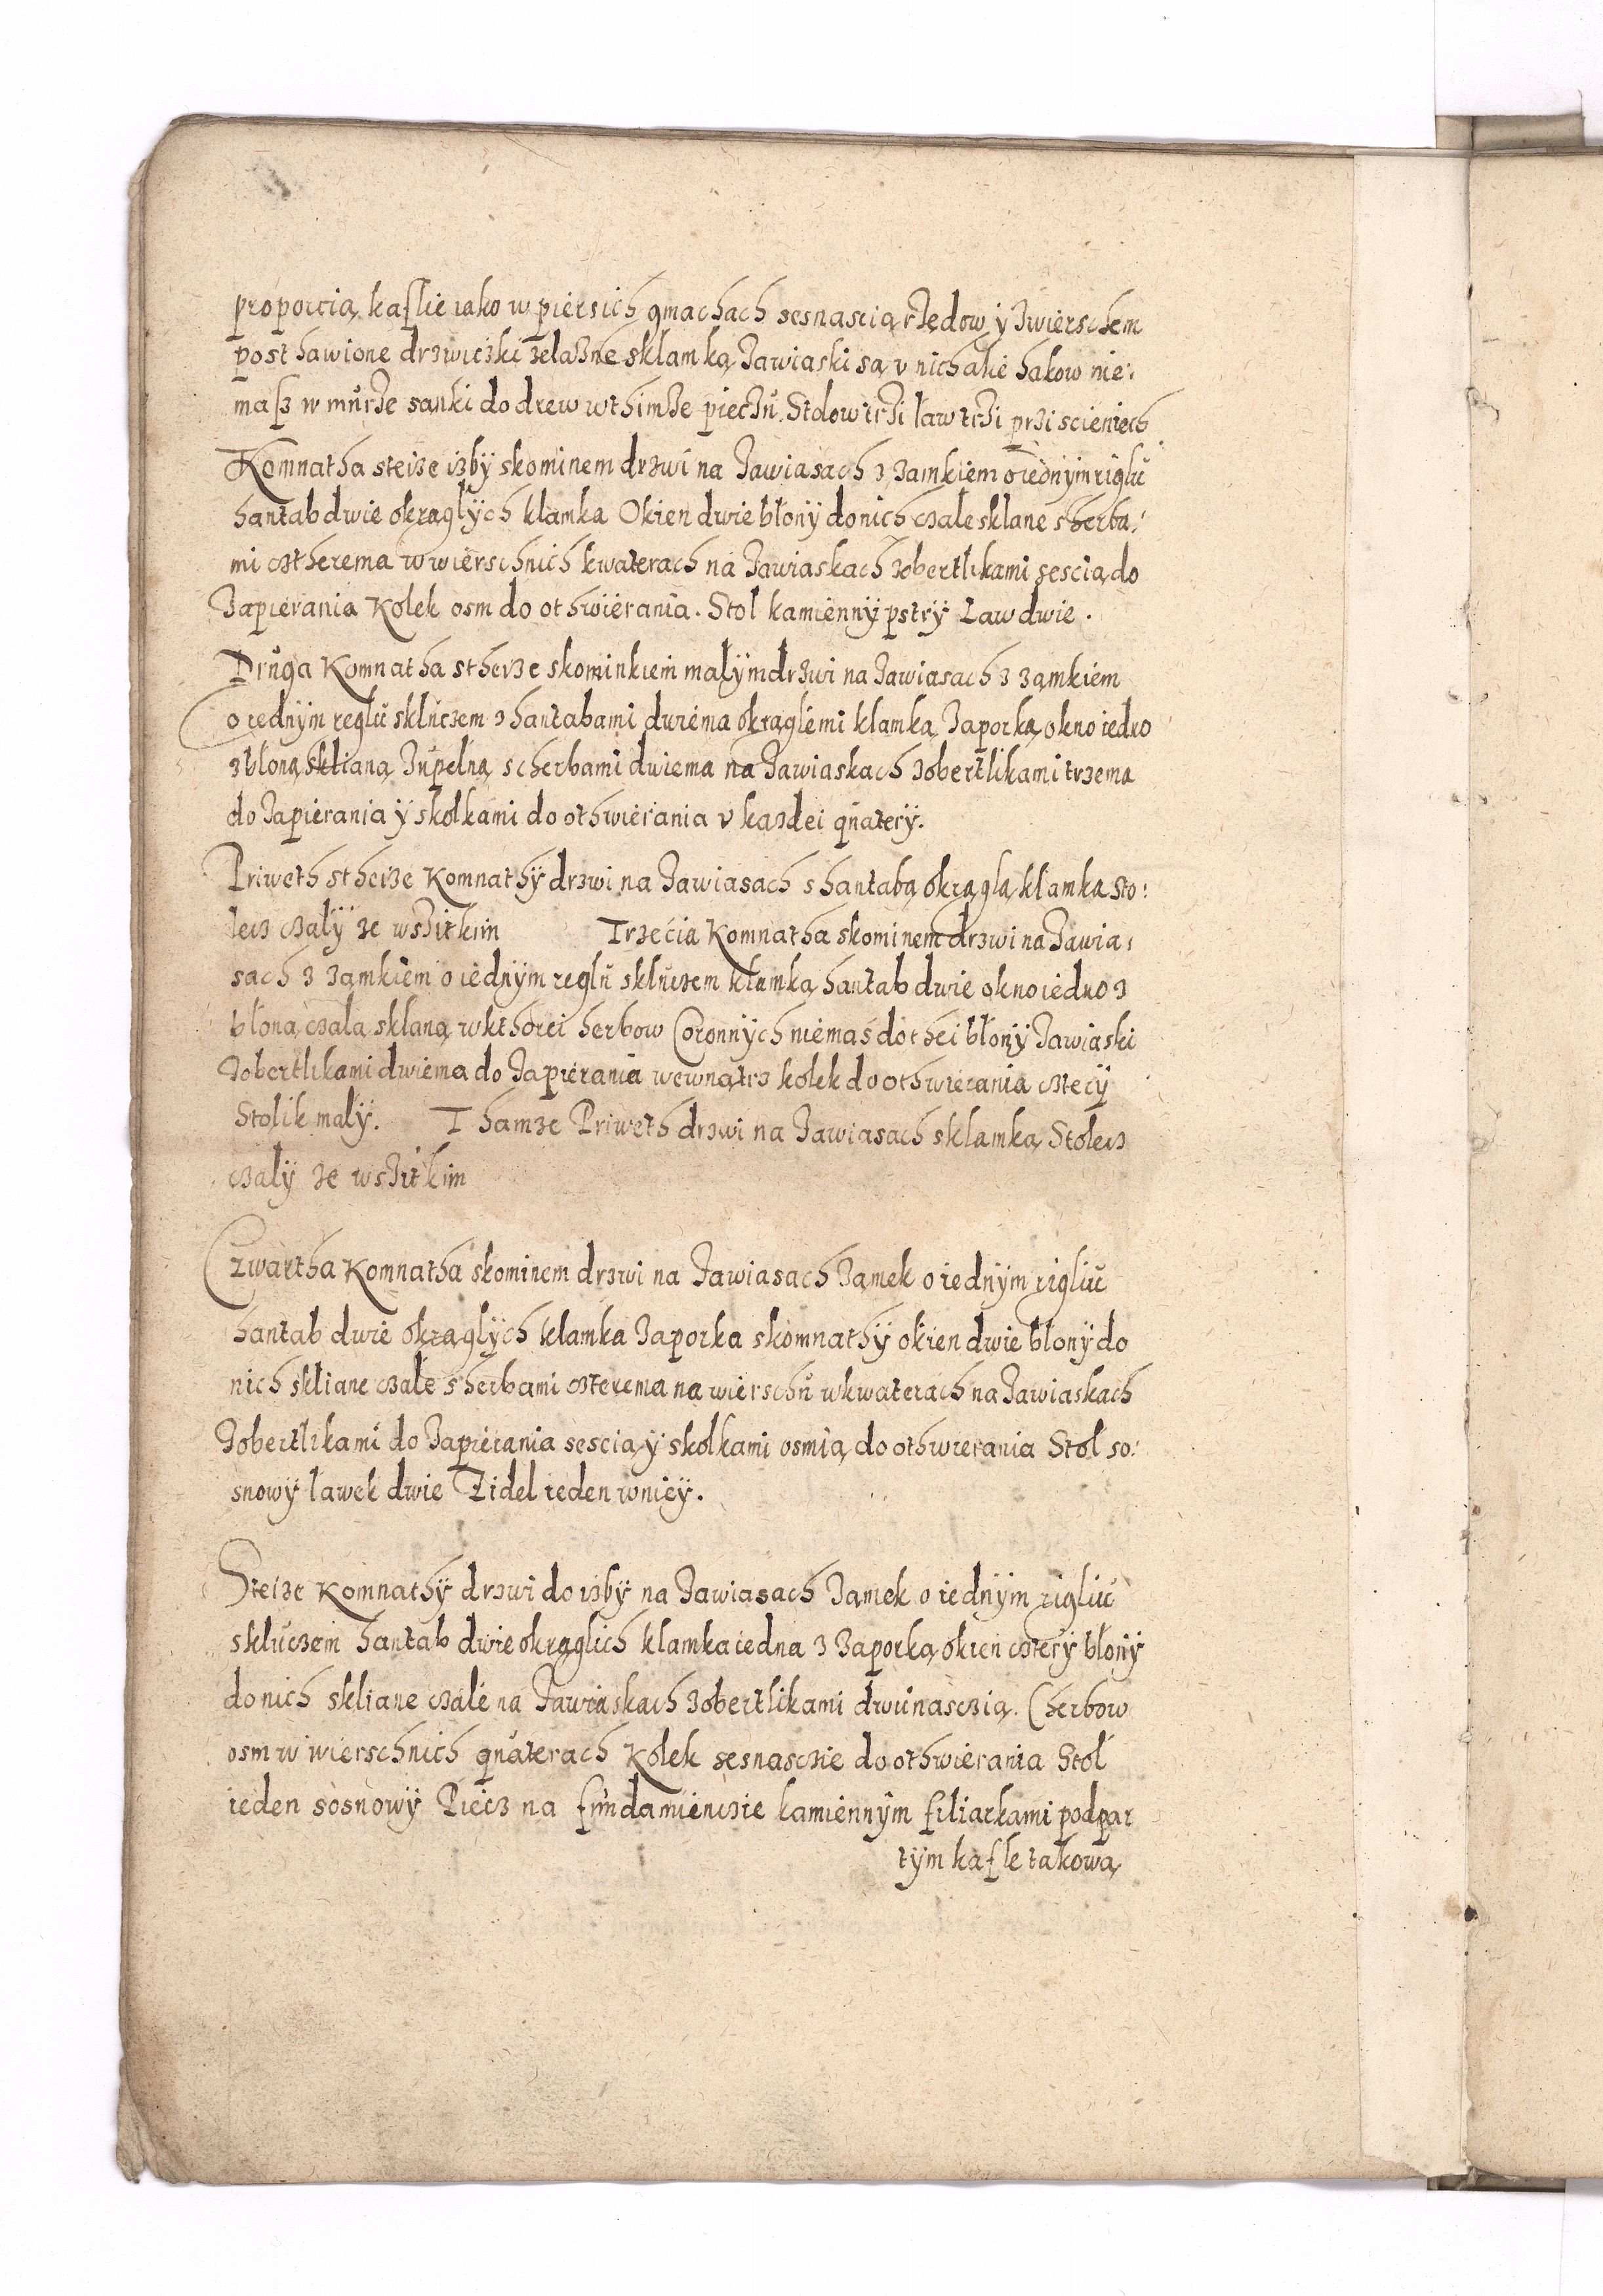 proporcią kaflie iako w piersich gmachach sesnascią rzędow y zwierschem
posthawione drzwiczki zelazne sklamką zawiaski są v nich alie hakow nie:
masz w murze sanki do drew wthimze pieczu. Stolow trzi ław trzi przi scieniech
Komnatha steize izbÿ skominem drzwi na zawiasach z zamkiem o iednÿm riglu
hantab dwie okragłÿch klamka Okien dwie błonÿ do nich czałe sklane s herba:
mi cztherema w wierschnich kwaterach na zawiaskach zobertlikami sescią do
zapierania Kołek osm do othwierania. Stol kamiennÿ pstrÿ Law dwie.
Druga Komnatha stheize skominkiem małÿm drzwi na zawiasach z zamkiem
o iednÿm reglu skluczem z hantabami dwiema okragłemi klamką zaporką okno iedno
z błoną skliana zupełną s cherbami dwiema na zawiaskach zobertlikami trzema
do zapierania ÿ skołkami do othwierania v kazdei quaterÿ.
Priweth stheize Komnathÿ drzwi na zawiasach s hantabą okrągłą klamka sto:
lecz czałÿ ze wszitkim Trzecia Komnatha skominem drzwi na zawia:
sach z zamkiem o iednÿm reglu skluczem klamką hantab dwie okno iedno z
błoną czałą sklaną wkthorei herbow Coronnÿch niemaś do thei błonÿ zawiaski
zobertlikami dwiema do zapierania wewnątrz kołek do othwierania czterÿ
Stolik małÿ. Thamze Priweth drzwi na zawiasach sklamką Stolecz
czałÿ ze wszitkim
Czwartha Komnatha skominem drzwi na zawiasach zamek o iednÿm rigliu
hantab dwie okragłÿch klamka zaporka skomnathÿ okien dwie błonÿ do
nich skliane czałe s herbami czterema na wierschu wkwaterach na zawiaskach
zobertlikami do zapierania sescią ÿ skołkami osmią do othwierania Stol so:
snowÿ ławek dwie Zidel ieden wnieÿ.
Steize Komnathÿ drzwi do izbÿ na zawiasach zamek o iednÿm rigliu
skluczem hantab dwie okrąglich klamka iedna z zaporką okien czterÿ błonÿ
do nich skliane czałe na zawiaskach zobertlikami dwunasczią. Cherbow
osm w wierschnich quaterach Kołek sesnasczie do othwierania Stoł
ieden sosnowÿ Piecz na fundamienczie kamiennÿm filiarkami podpar
tÿm kafle takową